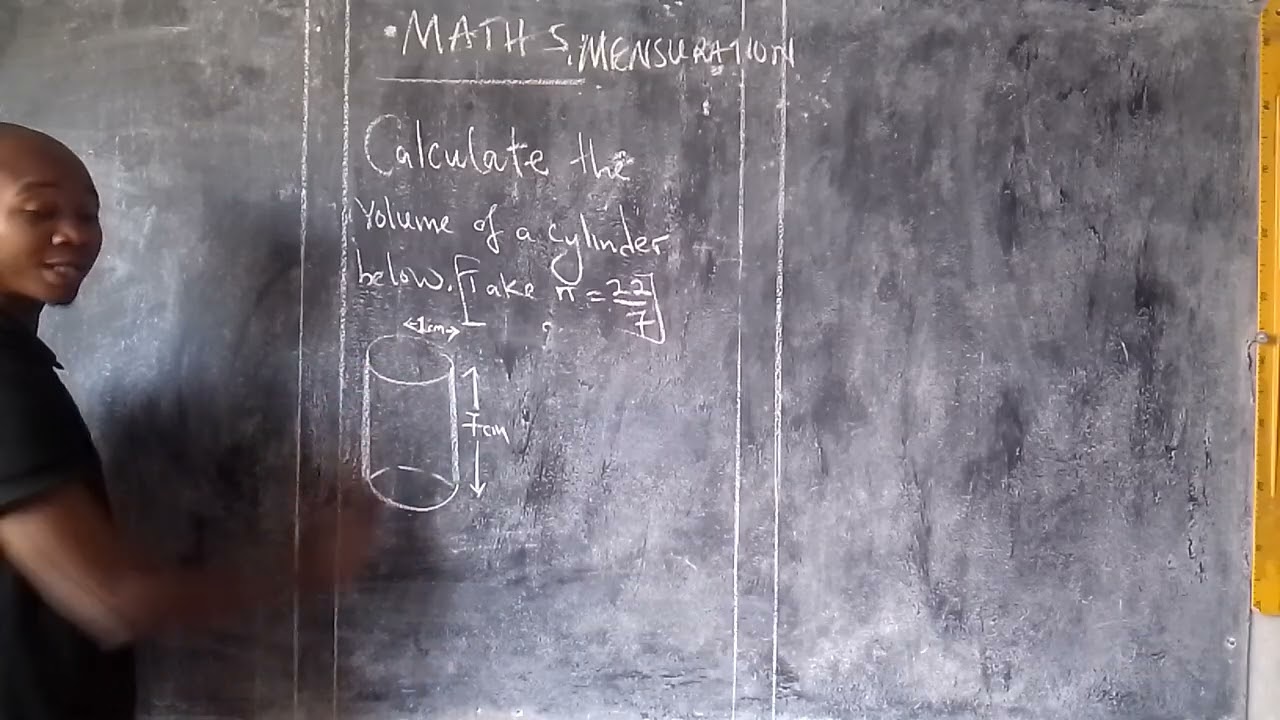 • MATHS. MENSURATION
Calculate the
Volume of a cylinder
below. [Take π = 22/7]
1cm
7cm